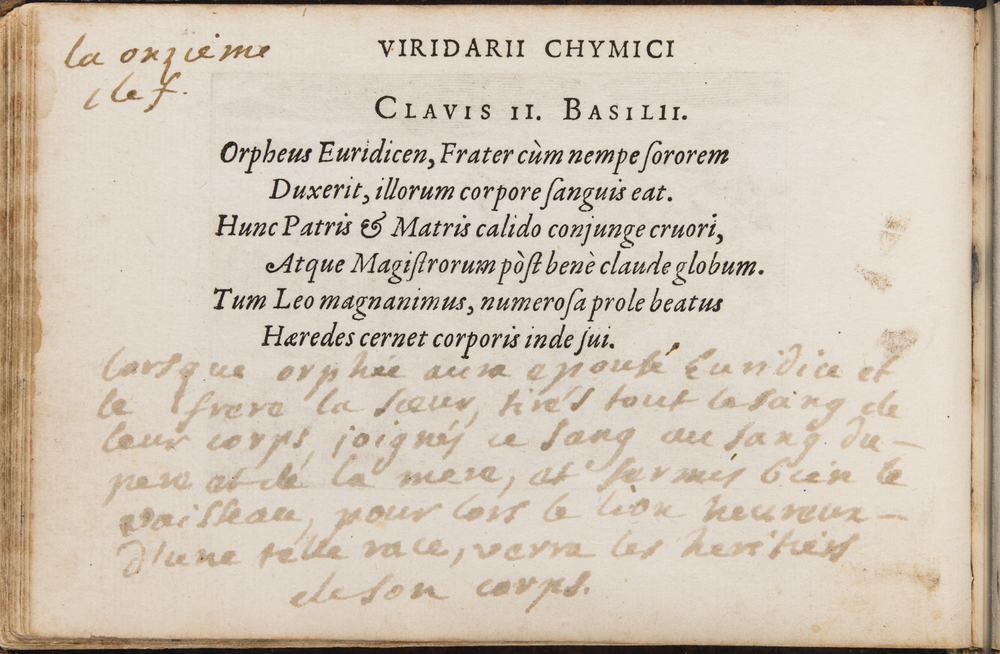 la onzieme
clef.
VIRIDARII CHYMICI
CLAVIS II. BASILII.
Orpheus Euridicen, Frater cùm nempe ſororem
Duxerit, illorum corpore ſanguis eat.
Hunc Patris & Matris calido conjunge cruori,
Atque Magiſtrorum pòſt benè claude globum.
Tum Leo magnanimus, numeroſa prole beatus
Hæredes cernet corporis inde ſui.
lorsque orphée aura epousé Euridice et
le frere la sœur, tirés tout le sang de
leur corps, joignés ce sang au sang du-
pere et de la mere, et fermés bien le
vaisseau, pour lors le lion heureux-
d'une telle race, verra les heritiers
de son corps.